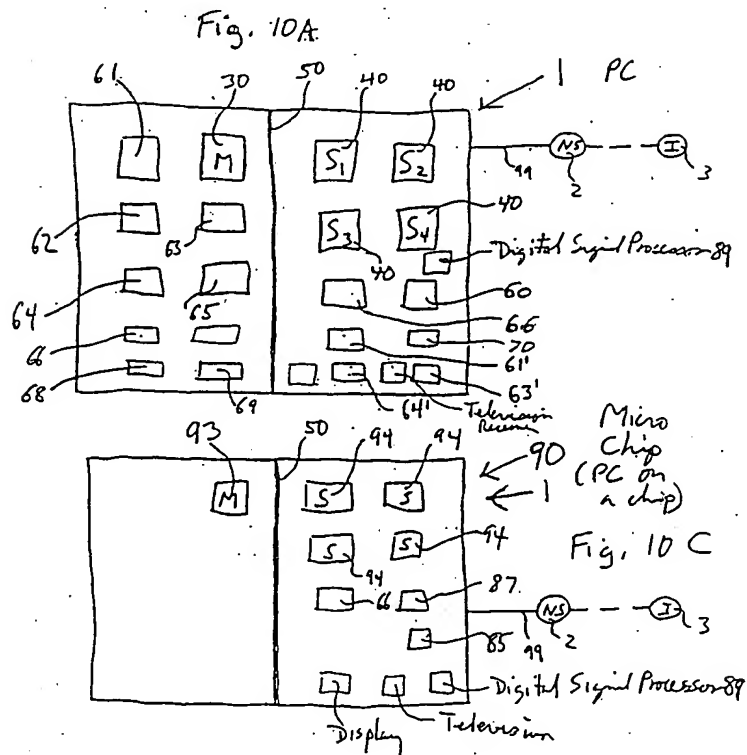 Fig. 10A
61 30 50 40 40 1 PC
M S1 S2 NS I
99 2 3
62 63 S3 S4 40
40 Digital Signal Processor 89
64 65 60
66
66 70
61'
68 69 64' Television Receiver 63'
93 50 94 94 90 Micro Chip (PC on a chip)
M S S 1
S S 94 Fig. 10C
94 66 87
NS I
85 99 2 3
Digital Signal Processor 89
Display Television